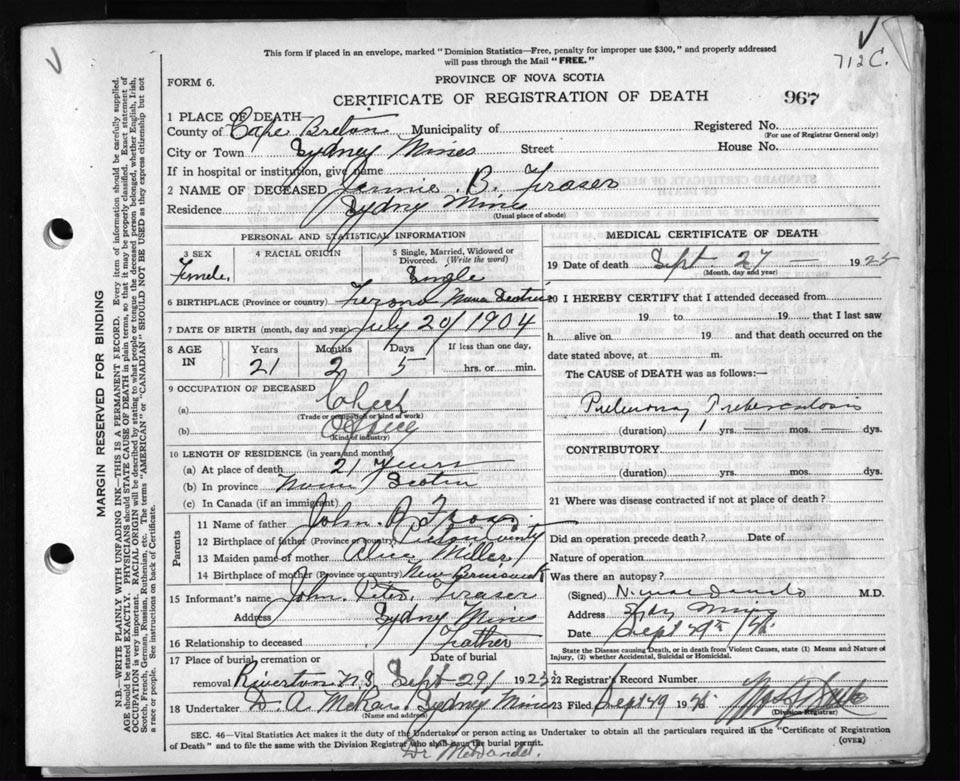 712 C.
This form if placed in an envelope, marked "Dominion Statistics—Free, penalty for improper use $300," and properly addressed
will pass through the Mail "FREE."
FORM 6.
PROVINCE OF NOVA SCOTIA
CERTIFICATE OF REGISTRATION OF DEATH
967
1 PLACE OF DEATH—
County of Cape Breton Municipality of Registered No.
(For use of Registrar General only)
City or Town Sydney Mines Street House No.
If in hospital or institution, give name
2 NAME OF DECEASED Jennie B. Fraser
Residence Sydney Mines
(Usual place of abode)
PERSONAL AND STATISTICAL INFORMATION
3 SEX 4 RACIAL ORIGIN 5 Single, Married, Widowed or Divorced. (Write the word)
Female Single
6 BIRTHPLACE (Province or country) Nova Scotia
7 DATE OF BIRTH (month, day and year) July 20/1904
8 AGE IN Years Months Days If less than one day,
21 2 5 hrs. or min.
9 OCCUPATION OF DECEASED
(a)
(Trade or occupation or kind of work)
(b) Office
(Kind of industry)
10 LENGTH OF RESIDENCE (in years and months)
(a) At place of death 21 Years
(b) In province Nova Scotia
(c) In Canada (if an immigrant)
Parents
11 Name of father John P. Fraser
12 Birthplace of father (Province or country) Pictou County
13 Maiden name of mother Alice Miller
14 Birthplace of mother (Province or country) New Brunswick
15 Informant's name John Peter Fraser
Address Sydney Mines
16 Relationship to deceased Father
17 Place of burial, cremation or removal Date of burial
Riverton N.S. Sept 29/ 1925
18 Undertaker D. A. McRae Sydney Mines
(Name and address)
MEDICAL CERTIFICATE OF DEATH
19 Date of death Sept 27 — 1925
(Month, day and year)
20 I HEREBY CERTIFY that I attended deceased from
19 to 19 that I last saw
h alive on 19 and that death occurred on the
date stated above, at m.
The CAUSE of DEATH was as follows:—
Pulmonary Tuberculosis
(duration) 1 yrs. — mos. — dys.
CONTRIBUTORY
(duration) yrs. mos. dys.
21 Where was disease contracted if not at place of death?
Did an operation precede death? Date of
Nature of operation
Was there an autopsy?
(Signed) M.D.
Address Sydney Mines
Date Sept 29th
State the Disease causing Death, or in death from Violent Causes, state (1) Means and Nature of
Injury, (2) whether Accidental, Suicidal or Homicidal.
22 Registrar's Record Number
23 Filed Sept 29 19
(Division Registrar)
SEC. 46—Vital Statistics Act makes it the duty of the Undertaker or person acting as Undertaker to obtain all the particulars required in the "Certificate of Registration
of Death" and to file the same with the Division Registrar who shall issue the burial permit.
(OVER)
Dr
MARGIN RESERVED FOR BINDING
N.B.—WRITE PLAINLY WITH UNFADING INK—THIS IS A PERMANENT RECORD. Every item of information should be carefully supplied.
AGE should be stated EXACTLY. PHYSICIANS should STATE CAUSE OF DEATH in plain terms, so that it may be properly classified. Exact statement of
OCCUPATION is very important. RACIAL ORIGIN will be described by stating to what people or tongue the deceased person belonged, whether English, Irish,
Scotch, French, German, Russian, Ruthenian, etc. The terms "AMERICAN" or "CANADIAN" SHOULD NOT BE USED as they express citizenship but not
a race or people. See instructions on back of Certificate.